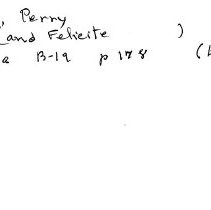 , Perry
and Felicite )
a B-19 p 178 (